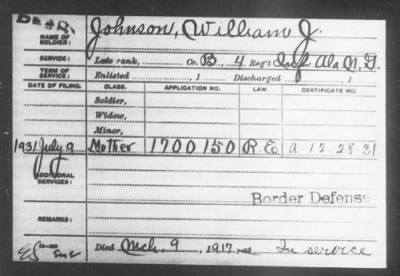 DEAD
NAME OF SOLDIER: Johnson, William J.
SERVICE: Late rank, Co. B, 4 Reg't Inf Ala N. G.
TERM OF SERVICE: Enlisted , 1 Discharged , 1
DATE OF FILING. CLASS. APPLICATION NO. LAW. CERTIFICATE NO.
Soldier,
Widow,
Minor,
1931 July 9 Mother 1700150 R E a 12 28 31
ADDITIONAL SERVICES:
Border Defense
REMARKS:
Died Mch. 9, 1917 In service